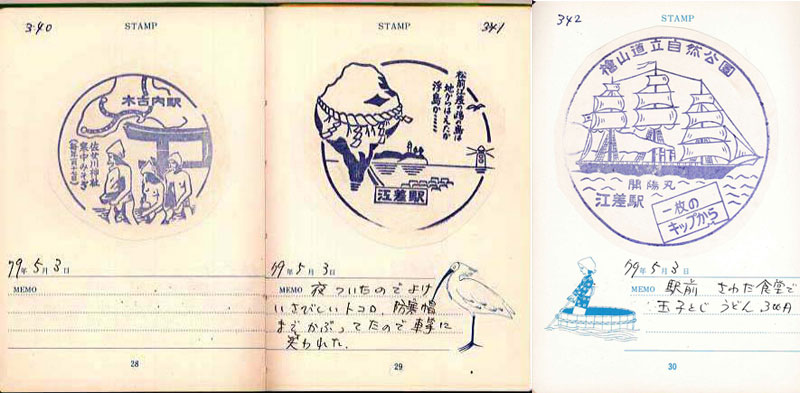 340
STAMP
木古内駅
佐女川神社
寒中みそぎ
79年5月3日
MEMO
28
341
STAMP
松前江差の鴎の島は
地からはえたか
浮島か……
江差駅
79年5月3日
MEMO 夜ついたのでよけ
いさびしいトコロ、防寒帽
までかぶってたので車掌に
笑われた.
29
342
STAMP
檜山道立自然公園
開陽丸
江差駅
一枚の
キップから
79年5月3日
MEMO 駅前 さわた食堂で
玉子とじ うどん 300円
30